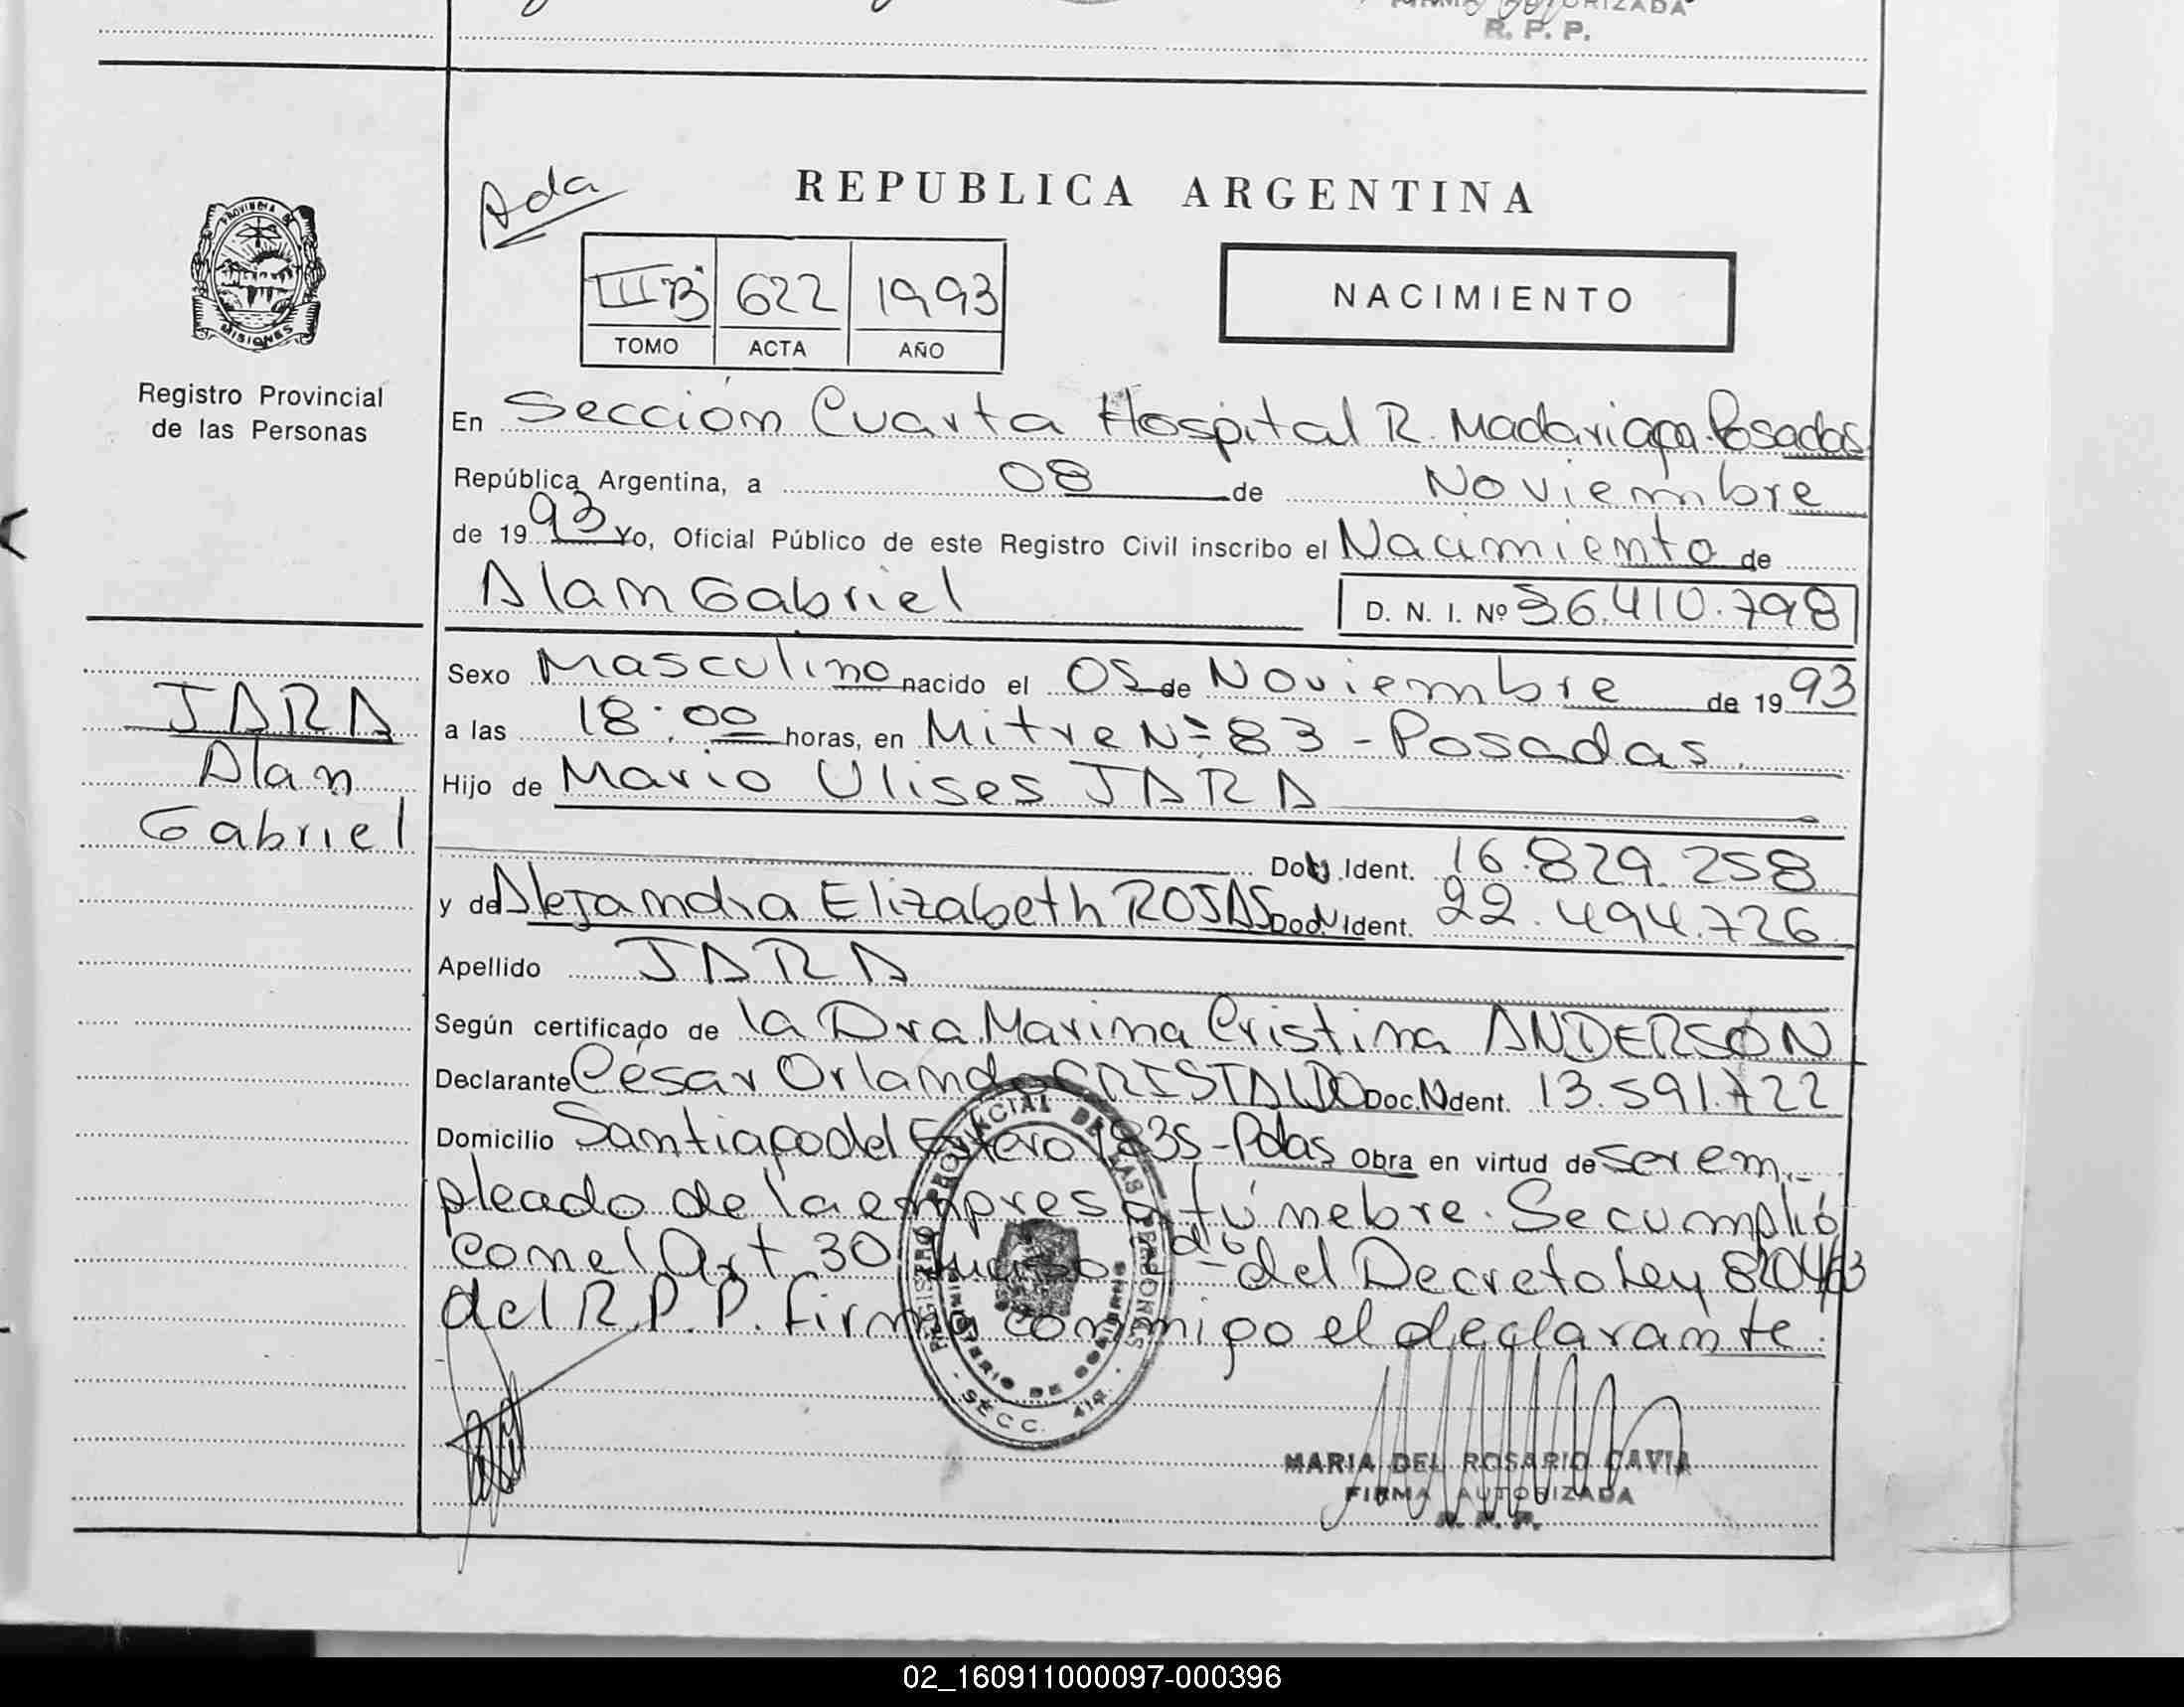 FIRMA AUTORIZADA
R. P. P.
PROVINCIA DE
MISIONES
Registro Provincial
de las Personas
Ada
REPUBLICA ARGENTINA
III B 622 1993
TOMO ACTA AÑO
NACIMIENTO
En Sección Cuarta Hospital R. Madariaga-Posadas
República Argentina, a 08 de Noviembre
de 1993 Yo, Oficial Público de este Registro Civil inscribo el Nacimiento de
Alan Gabriel D. N. I. Nº 36.410.798
JARA
Alan
Gabriel
Sexo Masculino nacido el 05 de Noviembre de 1993
a las 18:00 horas, en Mitre Nº 83 - Posadas
Hijo de Mario Ulises JARA
Doc. Ident. 16.829.258
y de Alejandra Elizabeth ROJAS Doc. Ident. 22.494.726
Apellido JARA
Según certificado de la Dra. Marina Cristina ANDERSON
Declarante César Orlando CRISTALDO Doc. Ident. 13.591.722
Domicilio Santiago del Estero 1835 - Pdas Obra en virtud de ser em-
pleado de la empresa fúnebre. Se cumplió
con el Art. 30 del Decreto Ley 8204/63
del R.P.P. firma conmigo el declarante.
REGISTRO PROVINCIAL DE LAS PERSONAS
MINISTERIO DE GOBIERNO
SECC. 4ta.
MARIA DEL ROSARIO CAVIA
FIRMA AUTORIZADA
R. P. P.
02_160911000097-000396